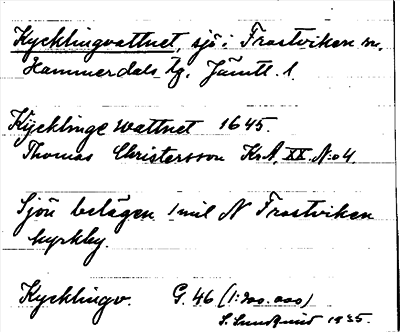 Kycklingvattnet, sjö i Frostviken sn,
Hammerdals tg, Jämtl. l.
Kÿcklinge wattnet 1645.
Thomas Christersson K.A. XX. N:o 4.
Sjön belägen 1 mil N Frostviken
kyrkby.
Kycklingv. G. 46 (1:200.000)
S. Lundqvist 1935.